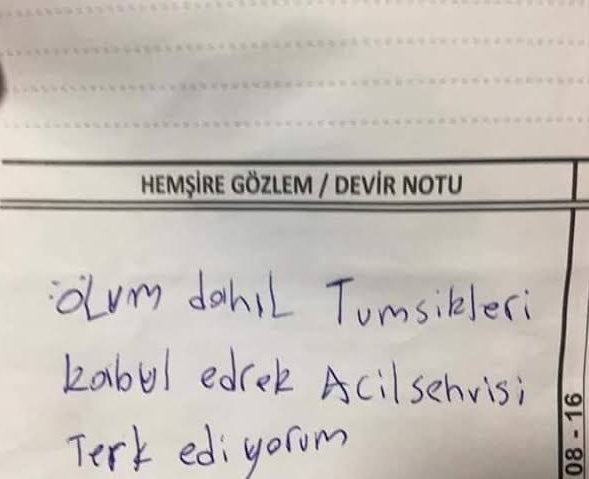 HEMŞİRE GÖZLEM / DEVİR NOTU
ölüm dahil Tumsikleri
kabul edrek Acilsehvisi
Terk ediyorum
08 - 16